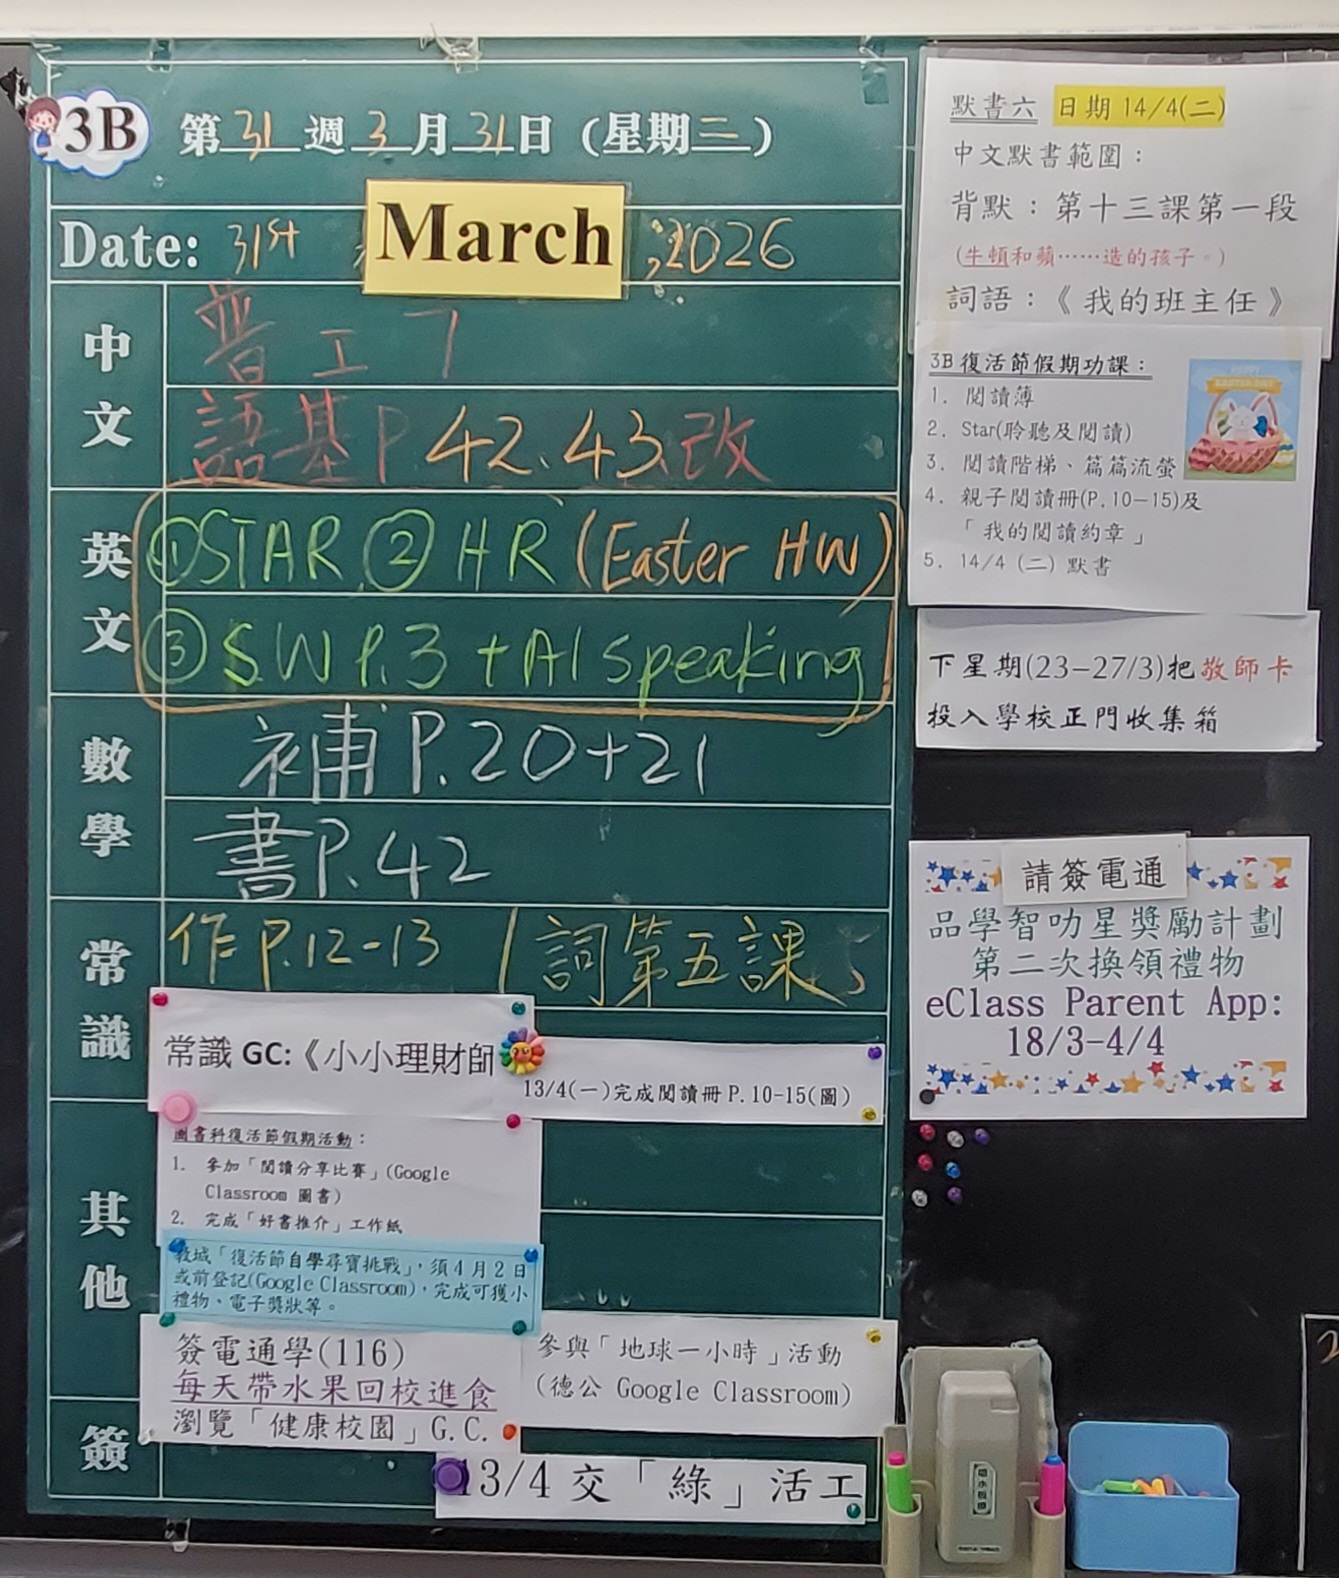 3B 第 31 週 3 月 31 日 (星期二)
Date: 31st March ,2026
中文
普工 7
語基P 42、43、改
英文
①STAR ② HR (Easter HW)
③ S.W P.3 + AI speaking
數學
補P.20+21
書P.42
常識
作P.12-13 / 詞第五課
常識 GC:《小小理財師
13/4(一)完成閱讀冊 P.10-15(圖)
其他
圖書科復活節假期活動:
1. 參加「閱讀分享比賽」(Google
Classroom 圖書)
2. 完成「好書推介」工作紙
教城「復活節自學尋寶挑戰」,須4月2日
或前登記(Google Classroom),完成可獲小
禮物、電子獎狀等。
簽電通學(116)
每天帶水果回校進食
瀏覽「健康校園」G.C.
參與「地球一小時」活動
(德公 Google Classroom)
簽
13/4 交「綠」活工
默書六 日期 14/4(二)
中文默書範圍:
背默:第十三課第一段
(牛頓和蘋……造的孩子。)
詞語:《我的班主任》
3B 復活節假期功課:
1. 閱讀簿
2. Star(聆聽及閱讀)
3. 閱讀階梯、篇篇流螢
4. 親子閱讀冊(P.10-15)及
「我的閱讀約章」
5. 14/4 (二) 默書
HAPPY
EASTER DAY
下星期(23-27/3)把敬師卡
投入學校正門收集箱
請簽電通
品學智叻星獎勵計劃
第二次換領禮物
eClass Parent App:
18/3-4/4